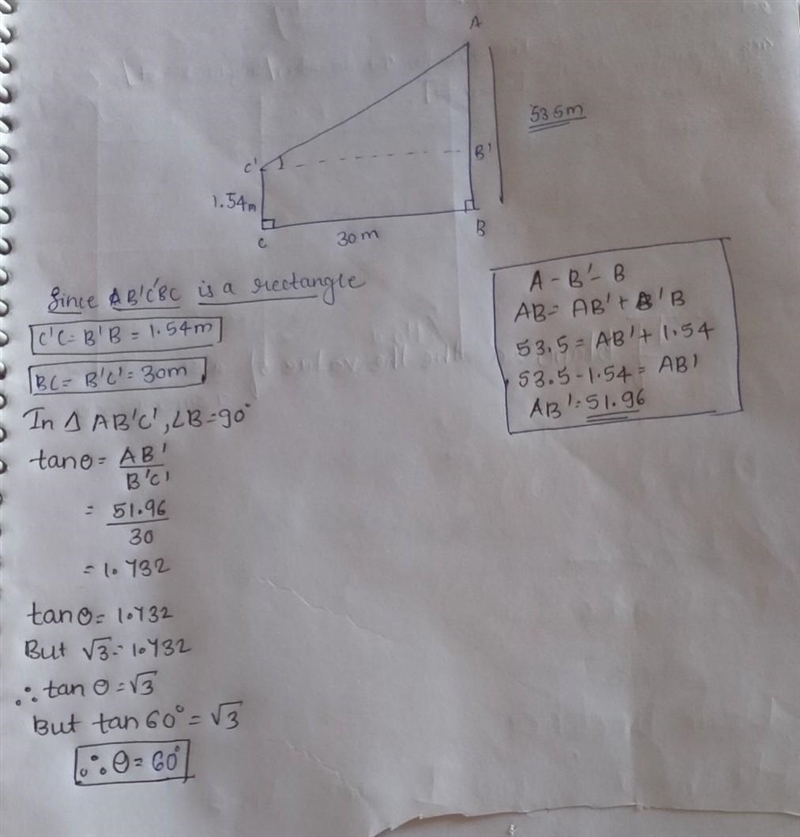 A
53.5m
C'
B'
1.54m
C
30m
B
Since AB'C'BC is a rectangle
C'C = B'B = 1.54m
BC = B'C' = 30m
In Δ AB'C', ∠B = 90°
tanθ = AB'
B'C'
= 51.96
30
= 1.732
tanθ = 1.732
But √3 = 1.732
∴ tan θ = √3
But tan 60° = √3
∴ θ = 60°
A - B' - B
AB = AB' + B'B
53.5 = AB' + 1.54
53.5 - 1.54 = AB'
AB' = 51.96